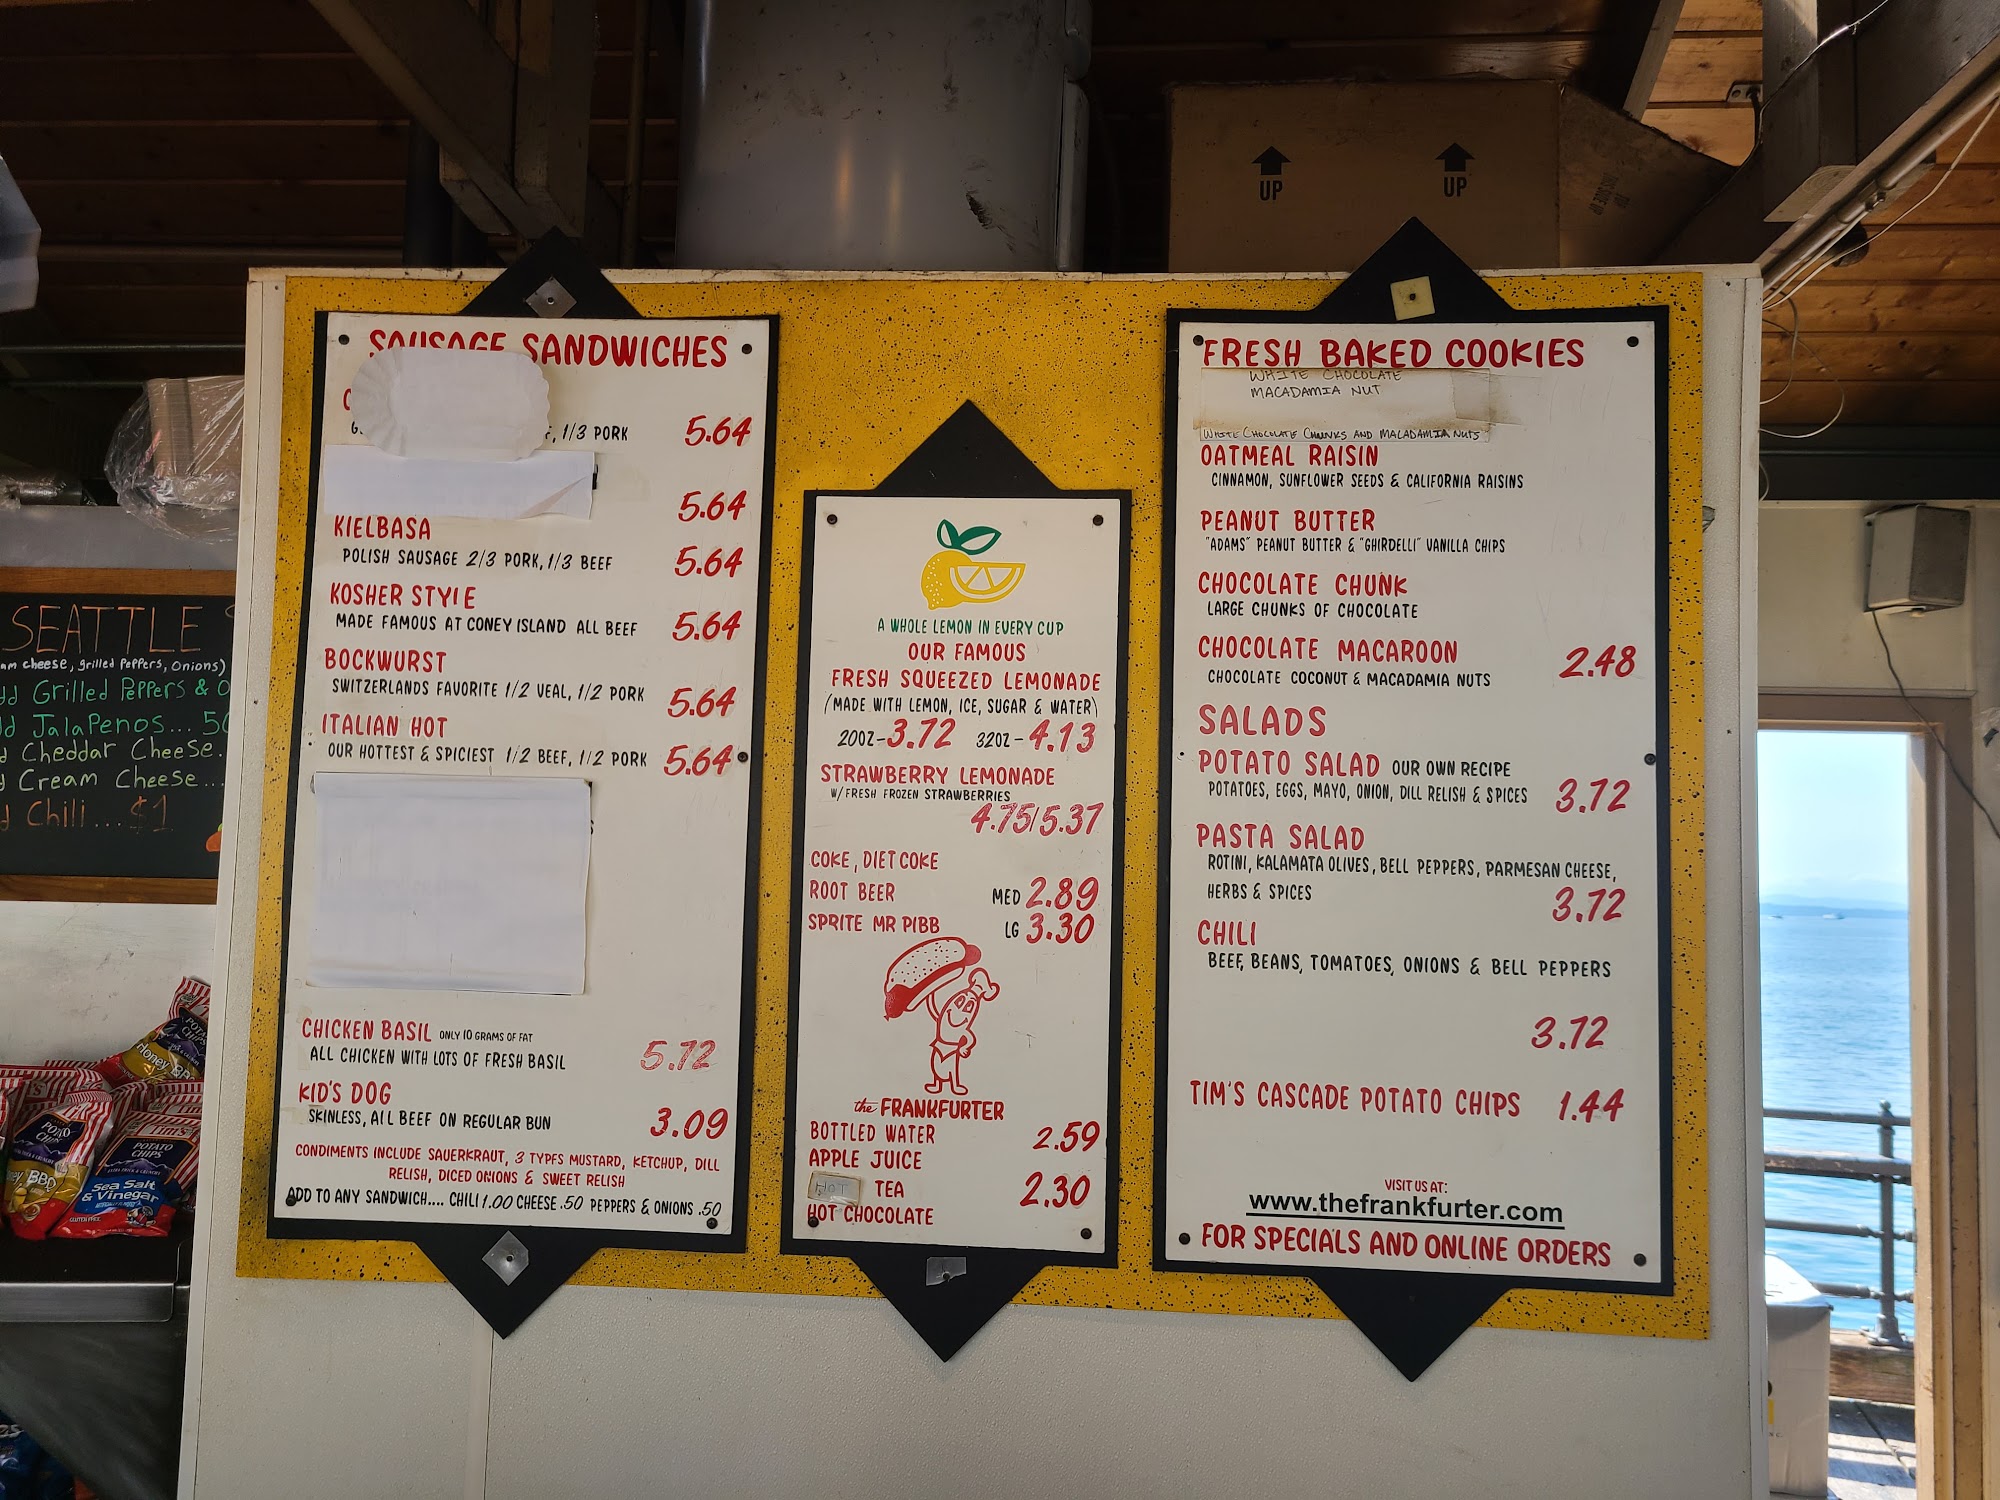 UP
UP
SEATTLE
am cheese, grilled Peppers, Onions)
dd Grilled Peppers & O
dd Jalapenos... 50
d Cheddar Cheese.
d Cream Cheese...
d Chili...$1
SAUSAGE SANDWICHES
, 1/3 PORK 5.64
5.64
KIELBASA
POLISH SAUSAGE 2/3 PORK, 1/3 BEEF 5.64
KOSHER STYLE
MADE FAMOUS AT CONEY ISLAND ALL BEEF 5.64
BOCKWURST
SWITZERLANDS FAVORITE 1/2 VEAL, 1/2 PORK 5.64
ITALIAN HOT
OUR HOTTEST & SPICIEST 1/2 BEEF, 1/2 PORK 5.64
CHICKEN BASIL ONLY 10 GRAMS OF FAT
ALL CHICKEN WITH LOTS OF FRESH BASIL 5.72
KID'S DOG
SKINLESS, ALL BEEF ON REGULAR BUN 3.09
CONDIMENTS INCLUDE SAUERKRAUT, 3 TYPES MUSTARD, KETCHUP, DILL
RELISH, DICED ONIONS & SWEET RELISH
ADD TO ANY SANDWICH.... CHILI 1.00 CHEESE .50 PEPPERS & ONIONS .50
A WHOLE LEMON IN EVERY CUP
OUR FAMOUS
FRESH SQUEEZED LEMONADE
(MADE WITH LEMON, ICE, SUGAR & WATER)
20OZ-3.72 32OZ-4.13
STRAWBERRY LEMONADE
W/ FRESH FROZEN STRAWBERRIES
4.75/5.37
COKE, DIET COKE
ROOT BEER MED 2.89
SPRITE MR PIBB LG 3.30
the FRANKFURTER
BOTTLED WATER 2.59
APPLE JUICE
HOT TEA 2.30
HOT CHOCOLATE
FRESH BAKED COOKIES
WHITE CHOCOLATE
MACADAMIA NUT
WHITE CHOCOLATE CHUNKS AND MACADAMIA NUTS
OATMEAL RAISIN
CINNAMON, SUNFLOWER SEEDS & CALIFORNIA RAISINS
PEANUT BUTTER
"ADAMS" PEANUT BUTTER & "GHIRDELLI" VANILLA CHIPS
CHOCOLATE CHUNK
LARGE CHUNKS OF CHOCOLATE
CHOCOLATE MACAROON 2.48
CHOCOLATE COCONUT & MACADAMIA NUTS
SALADS
POTATO SALAD OUR OWN RECIPE
POTATOES, EGGS, MAYO, ONION, DILL RELISH & SPICES 3.72
PASTA SALAD
ROTINI, KALAMATA OLIVES, BELL PEPPERS, PARMESAN CHEESE,
HERBS & SPICES 3.72
CHILI
BEEF, BEANS, TOMATOES, ONIONS & BELL PEPPERS
3.72
TIM'S CASCADE POTATO CHIPS 1.44
VISIT US AT:
www.thefrankfurter.com
FOR SPECIALS AND ONLINE ORDERS
Honey BBQ
POTATO
CHIPS
BBQ
Tim's
POTATO
CHIPS
Sea Salt
& Vinegar